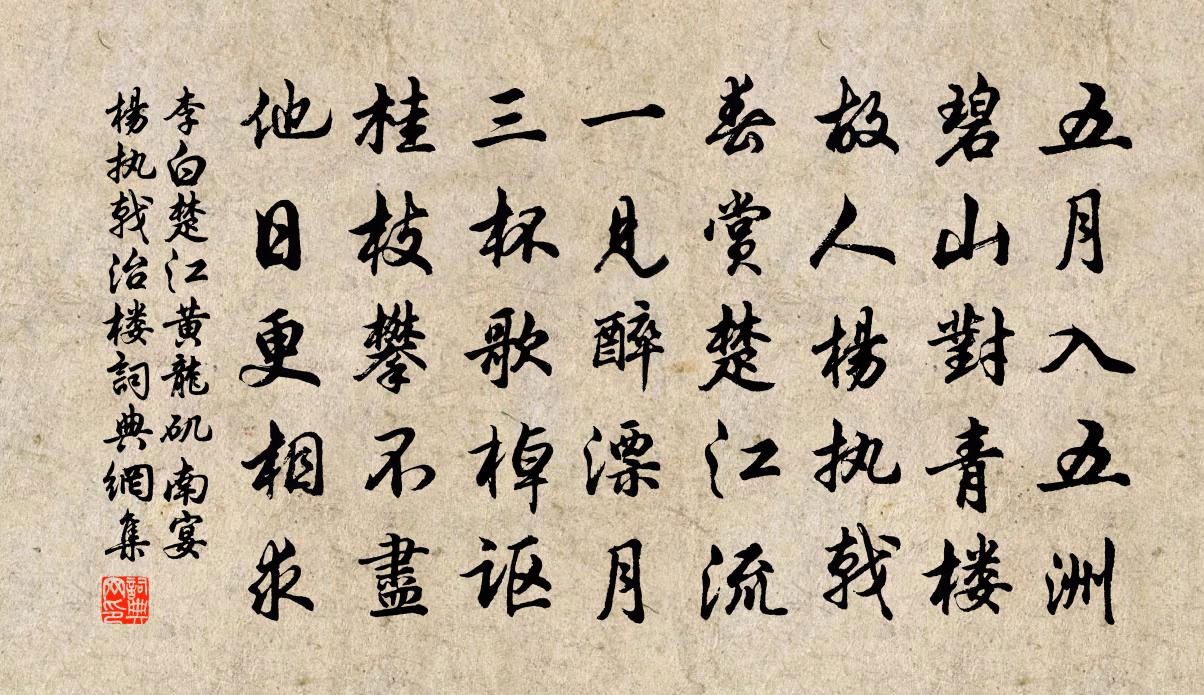 五月入五洲
碧山對青楼
故人楊执戟
春賞楚江流
一見醉漂月
三杯歌棹讴
桂枝攀不盡
他日更相求
李白楚江黄龍矶南宴
楊执戟治楼詞典網集
詞典網印